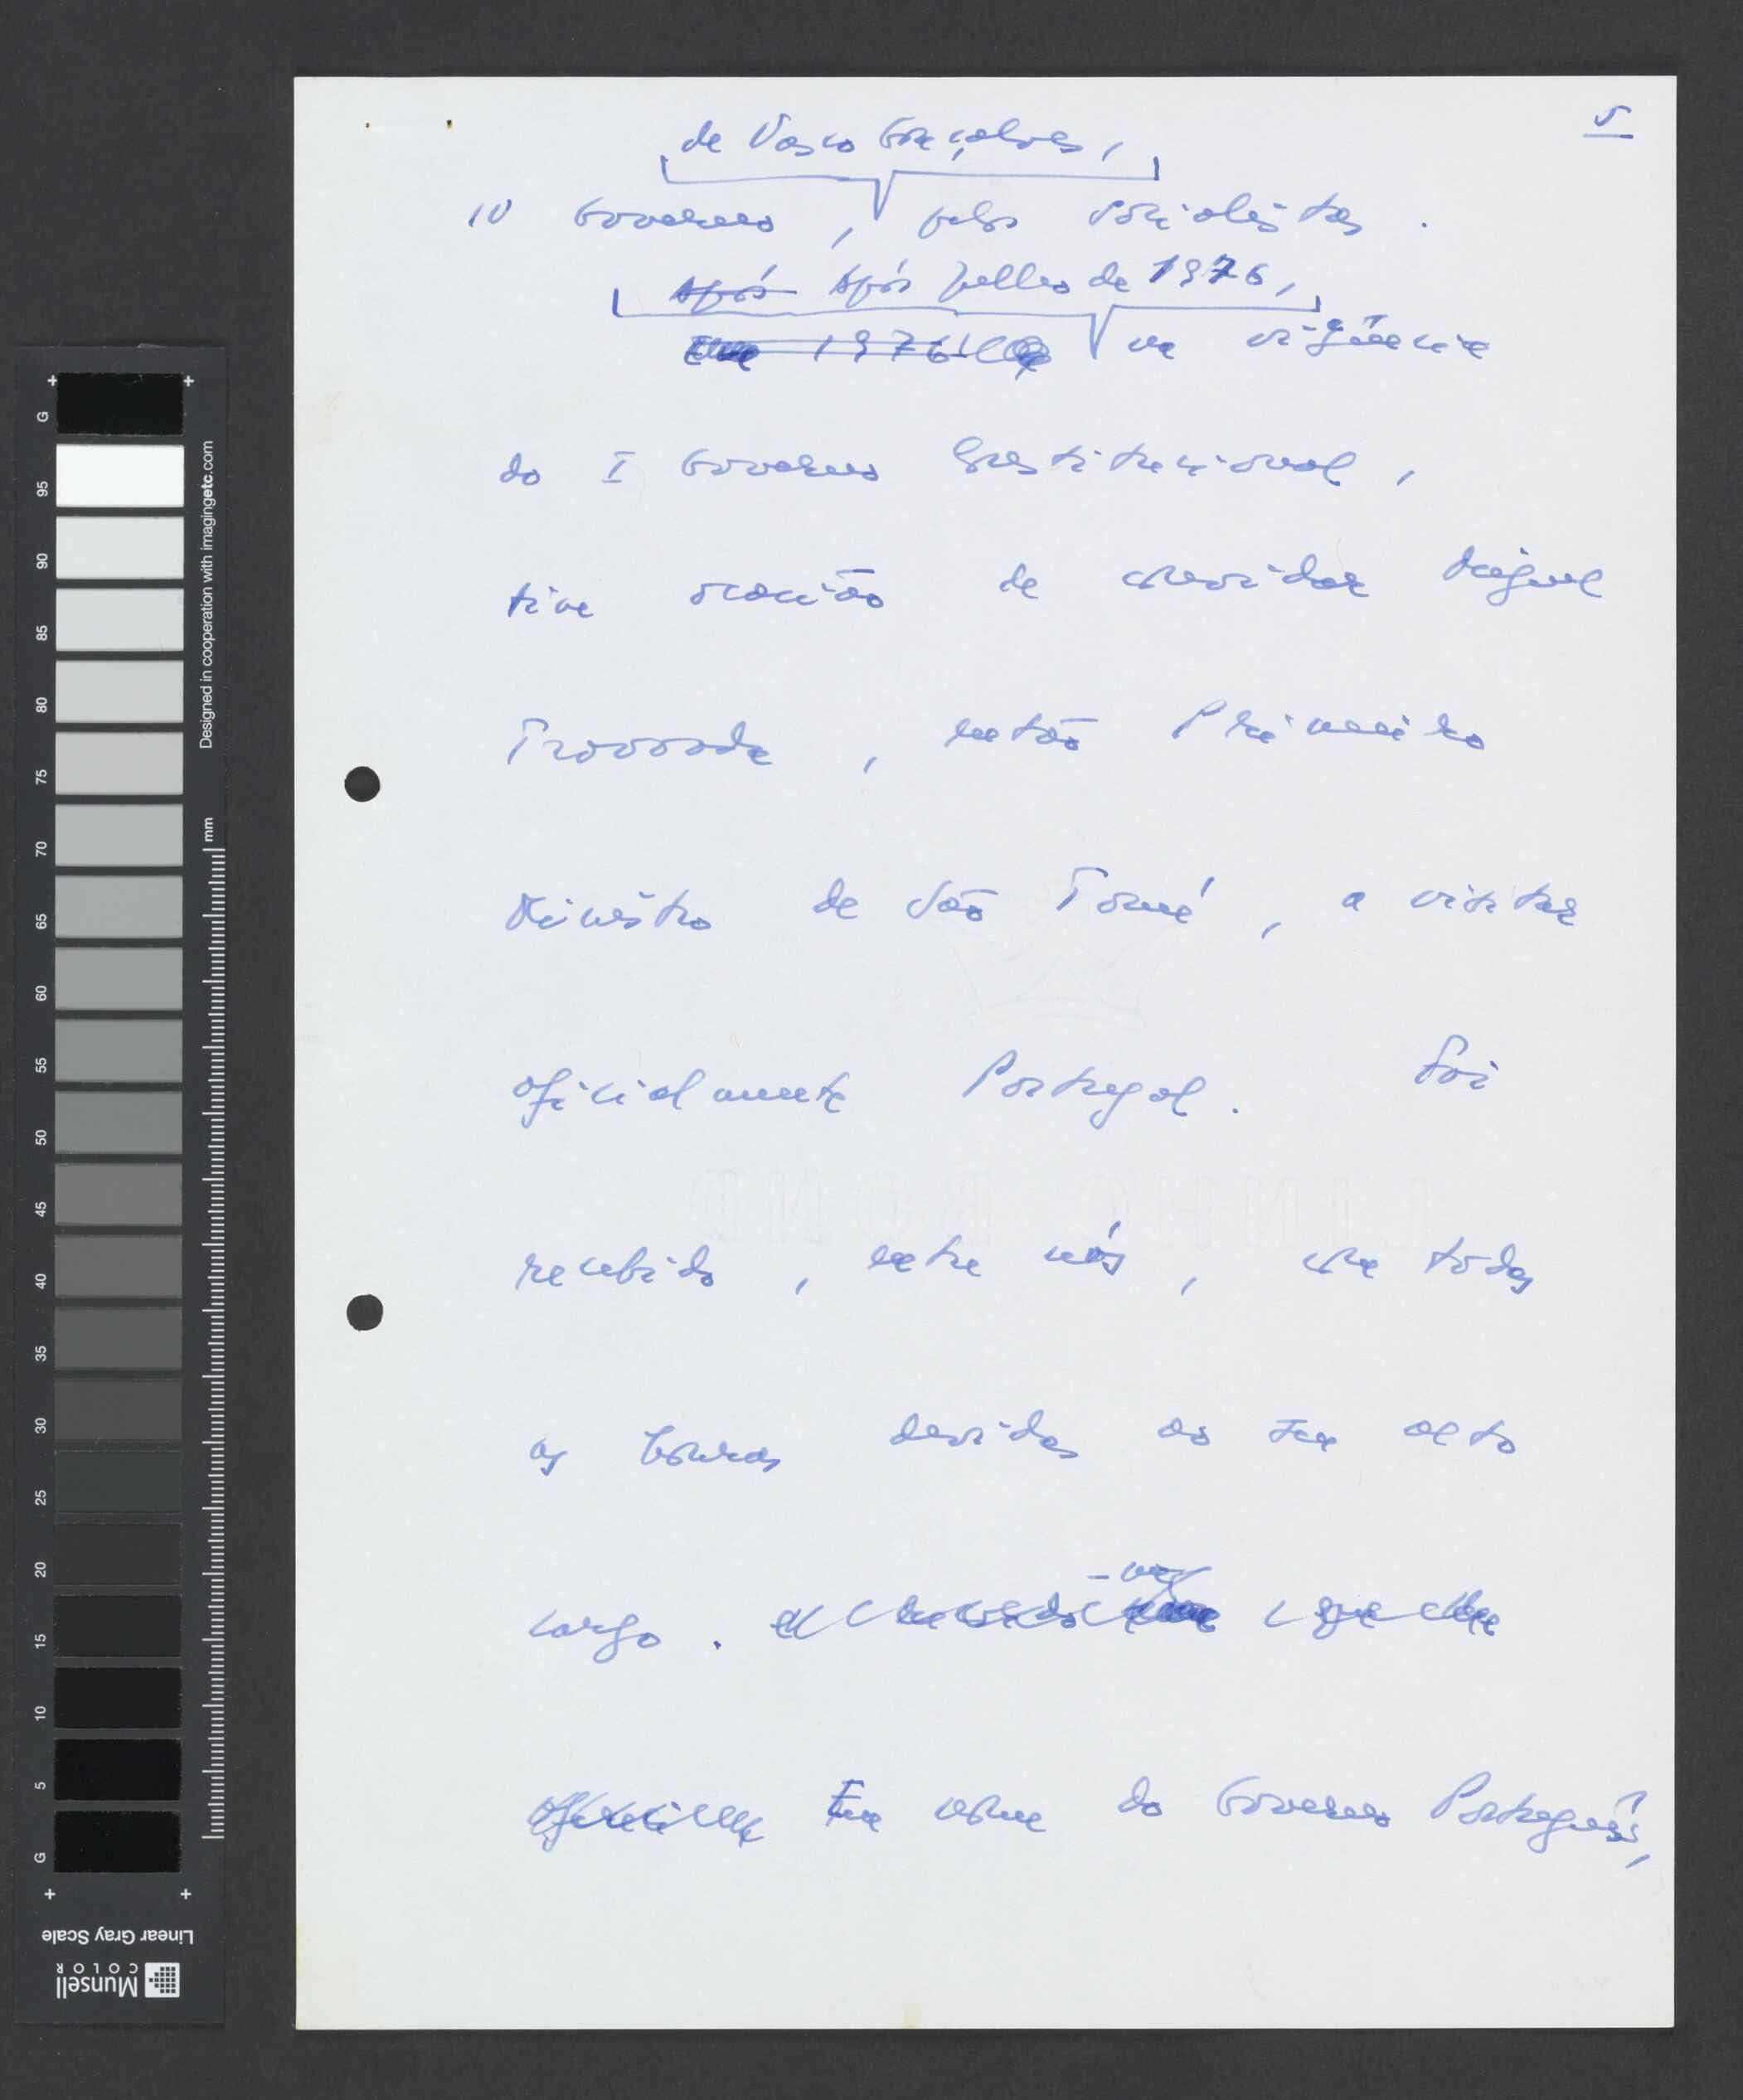 5
de Vasco Gonçalves,
IV Governo, pelos socialistas.
Após Após Julho de 1976,
Em 1976 na vigência
do I Governo Constitucional,
tive ocasião de convidar Miguel
Trovoada, então Primeiro
Ministro de São Tomé, a visitar
oficialmente Portugal. Foi
recebido, entre nós, com todas
as honras devidas ao seu alto
cargo.
Em nome do Governo Português,
LINHO BOND
G 95 90 85 80 75 70 65 60 55 50 45 40 35 30 25 20 15 10 5 G
Designed in cooperation with imagingetc.com
mm
Linear Gray Scale
Munsell
COLOR